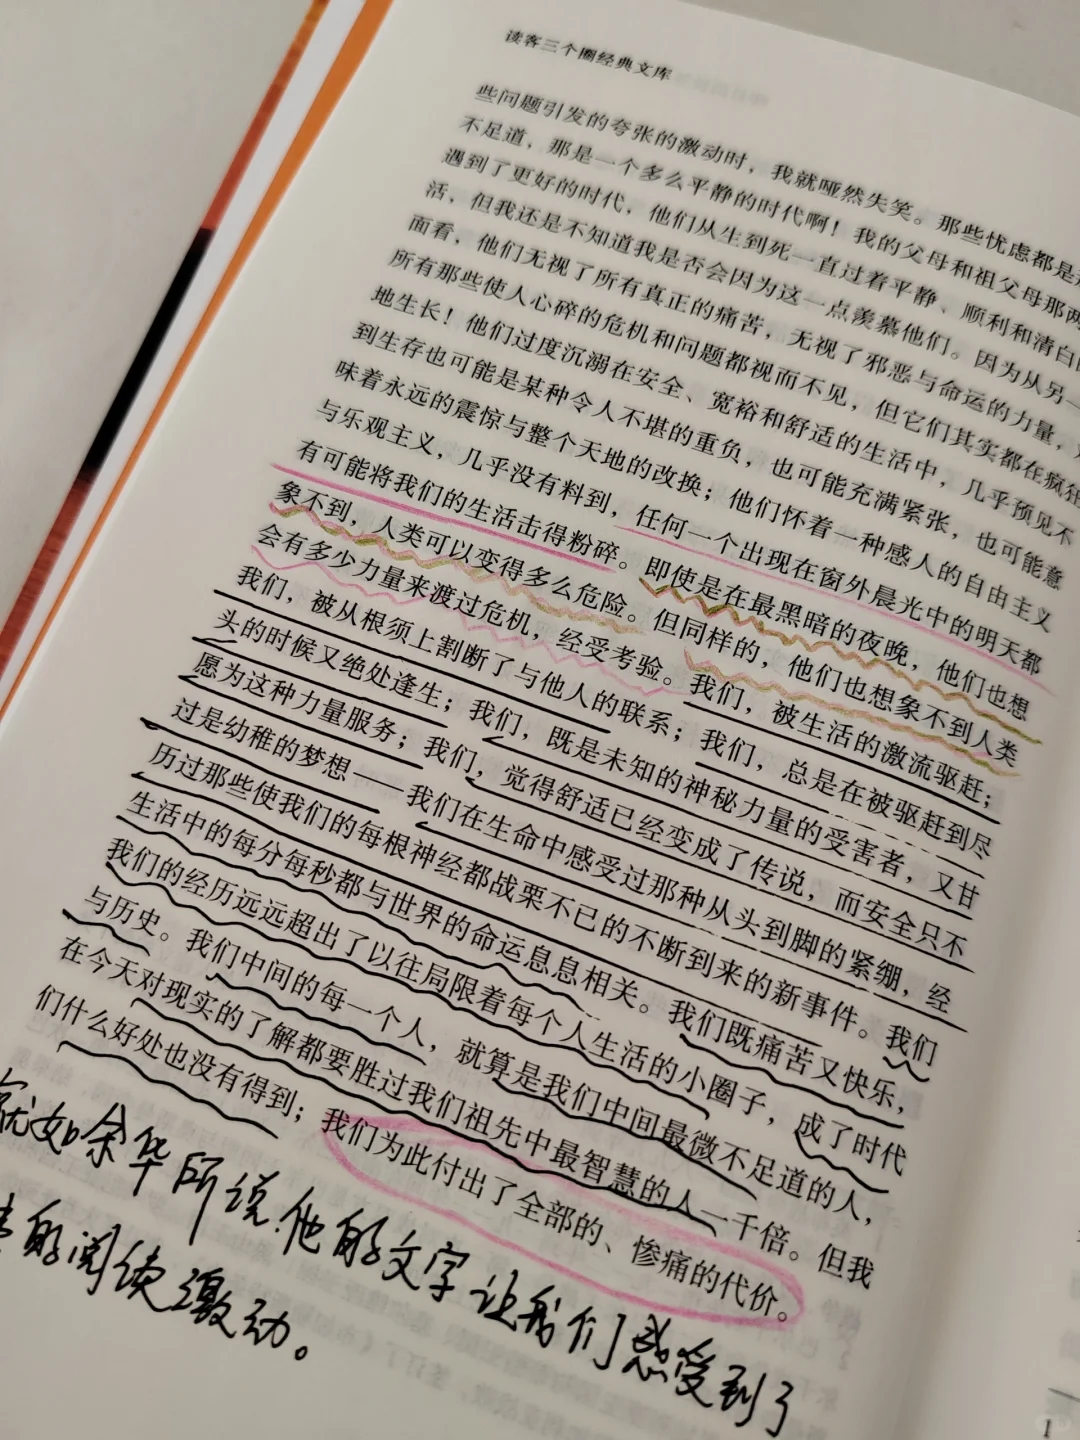 读客三个圈经典文库
些问题引发的夸张的激动时，我就哑然失笑。那些忧虑都是
不足道，那是一个多么平静的时代啊！我的父母和祖父母那两
遇到了更好的时代，他们从生到死一直过着平静、顺利和清白
活，但我还是不知道我是否会因为这一点羡慕他们。因为从另一
面看，他们无视了所有真正的痛苦，无视了邪恶与命运的力量，
所有那些使人心碎的危机和问题都视而不见，但它们其实都在疯狂
地生长！他们过度沉溺在安全、宽裕和舒适的生活中，几乎预见不
到生存也可能是某种令人不堪的重负，也可能充满紧张，也可能意
味着永远的震惊与整个天地的改换；他们怀着一种感人的自由主义
与乐观主义，几乎没有料到，任何一个出现在窗外晨光中的明天都
有可能将我们的生活击得粉碎。即使是在最黑暗的夜晚，他们也想
象不到，人类可以变得多么危险。但同样的，他们也想象不到人类
会有多少力量来渡过危机，经受考验。我们，被生活的激流驱赶；
我们，被从根须上割断了与他人的联系；我们，总是在被驱赶到尽
头的时候又绝处逢生；我们，既是未知的神秘力量的受害者，又甘
愿为这种力量服务；我们，觉得舒适已经变成了传说，而安全只不
过是幼稚的梦想——我们在生命中感受过那种从头到脚的紧绷，经
历过那些使我们的每根神经都战栗不已的不断到来的新事件。我们
生活中的每分每秒都与世界的命运息息相关。我们既痛苦又快乐，
我们的经历远远超出了以往局限着每个人生活的小圈子，成了时代
与历史。我们中间的每一个人，就算是我们中间最微不足道的人，
在今天对现实的了解都要胜过我们祖先中最智慧的人一千倍。但我
们什么好处也没有得到；我们为此付出了全部的、惨痛的代价。
就如余华所说：他的文字让我们感受到了
的阅读激动。
1